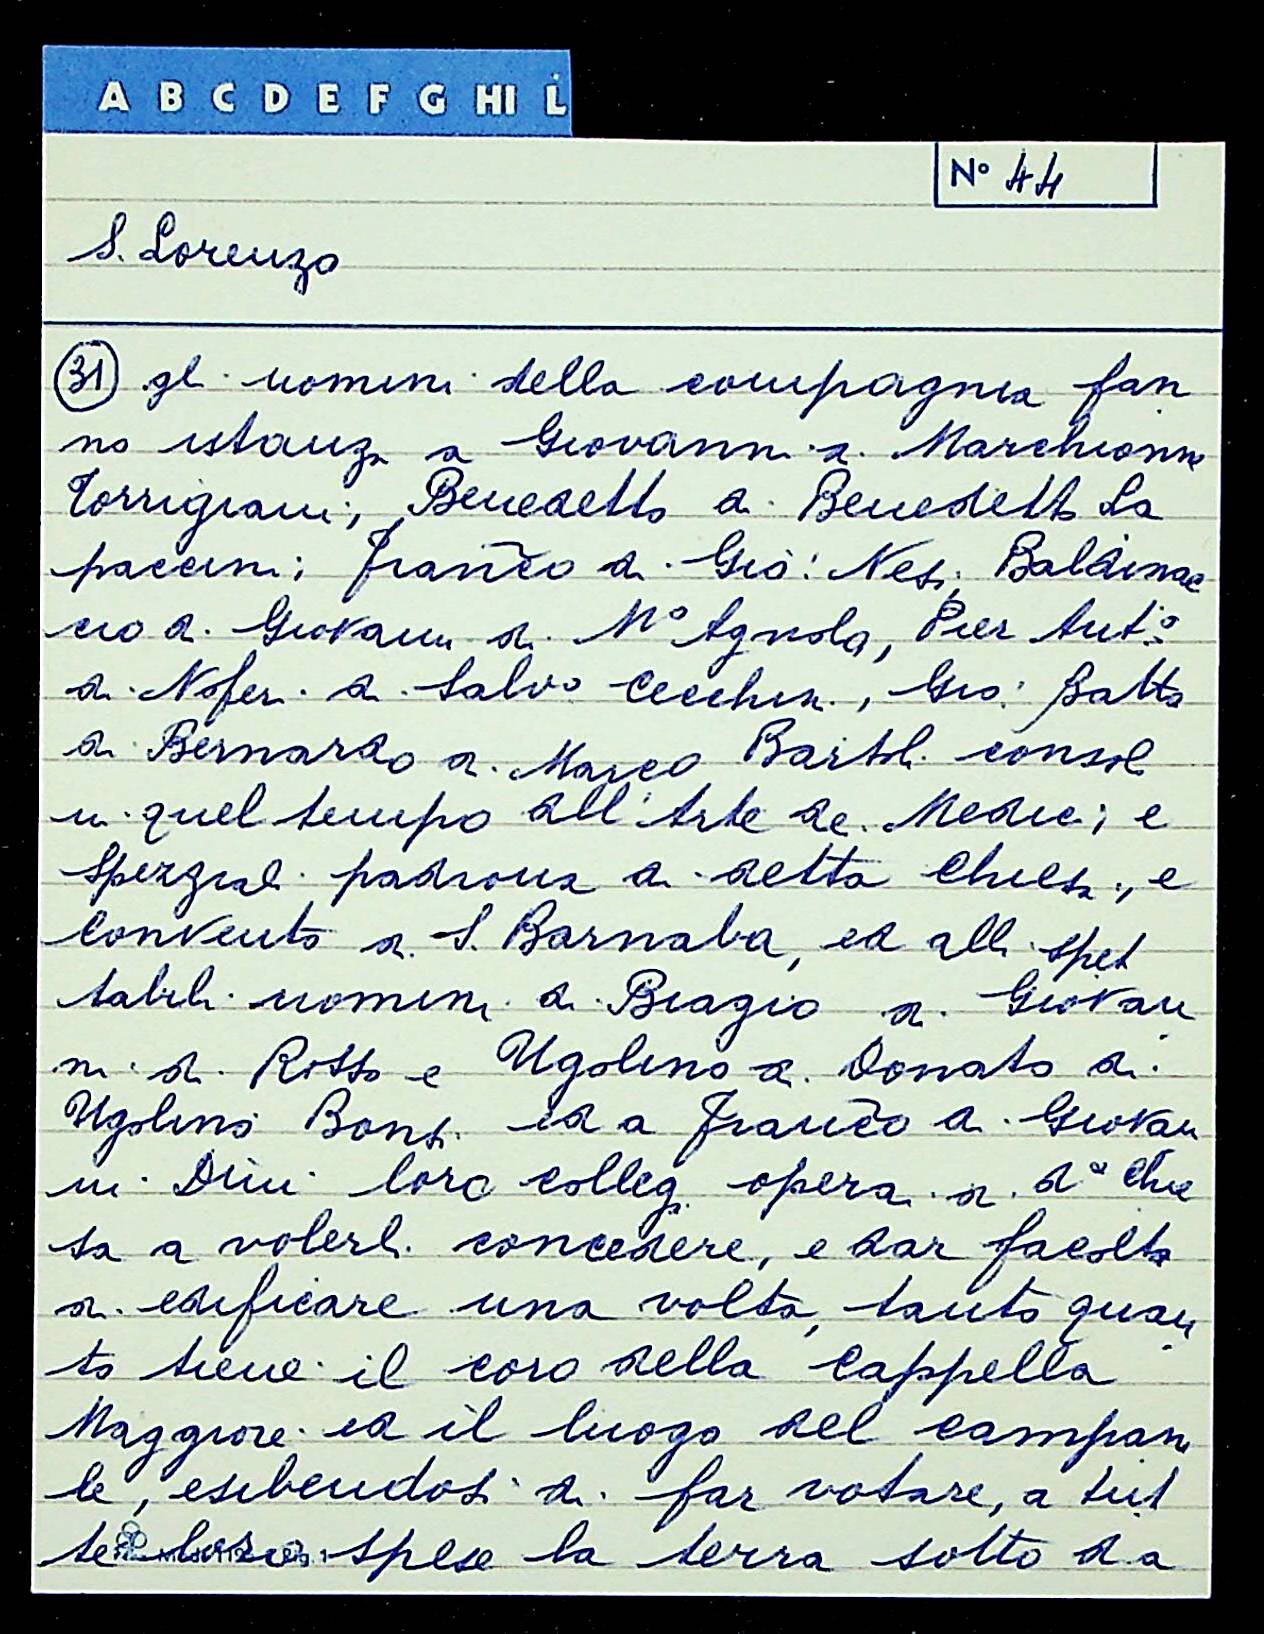 A B C D E F G HI L
Nº 44
S. Lorenzo
31 gli uomini della compagnia fan
no istanza a Giovanni di Marchionne
Torrigiani, Benedetto di Benedetto La
paccini; Franco di Gio: Nesi, Baldinac
cio di Giovanni di Mº Agnolo, Pier Antº
di Noferi di Salvo Cecchini, Gio: Batta
di Bernardo di Marco Bartoli consoli
in quel tempo all'Arte de Medici e
Speziali padrona di detta Chiesa, e
Convento di S. Barnaba, ed alli spet
tabili uomini di Biagio di Giovan
ni di Rosso e Ugolino di Donato di
Ugolino Bonsi ed a Franco di Giovan
ni Dini loro collegi operai di dª Chie
sa a volerli concedere, e dar facoltà
di edificare una volta, tanto quan
to tiene il coro della Cappella
Maggiore ed il luogo del campani
le, esibendosi di far votare, a tut
te loro spese la terra sotto da